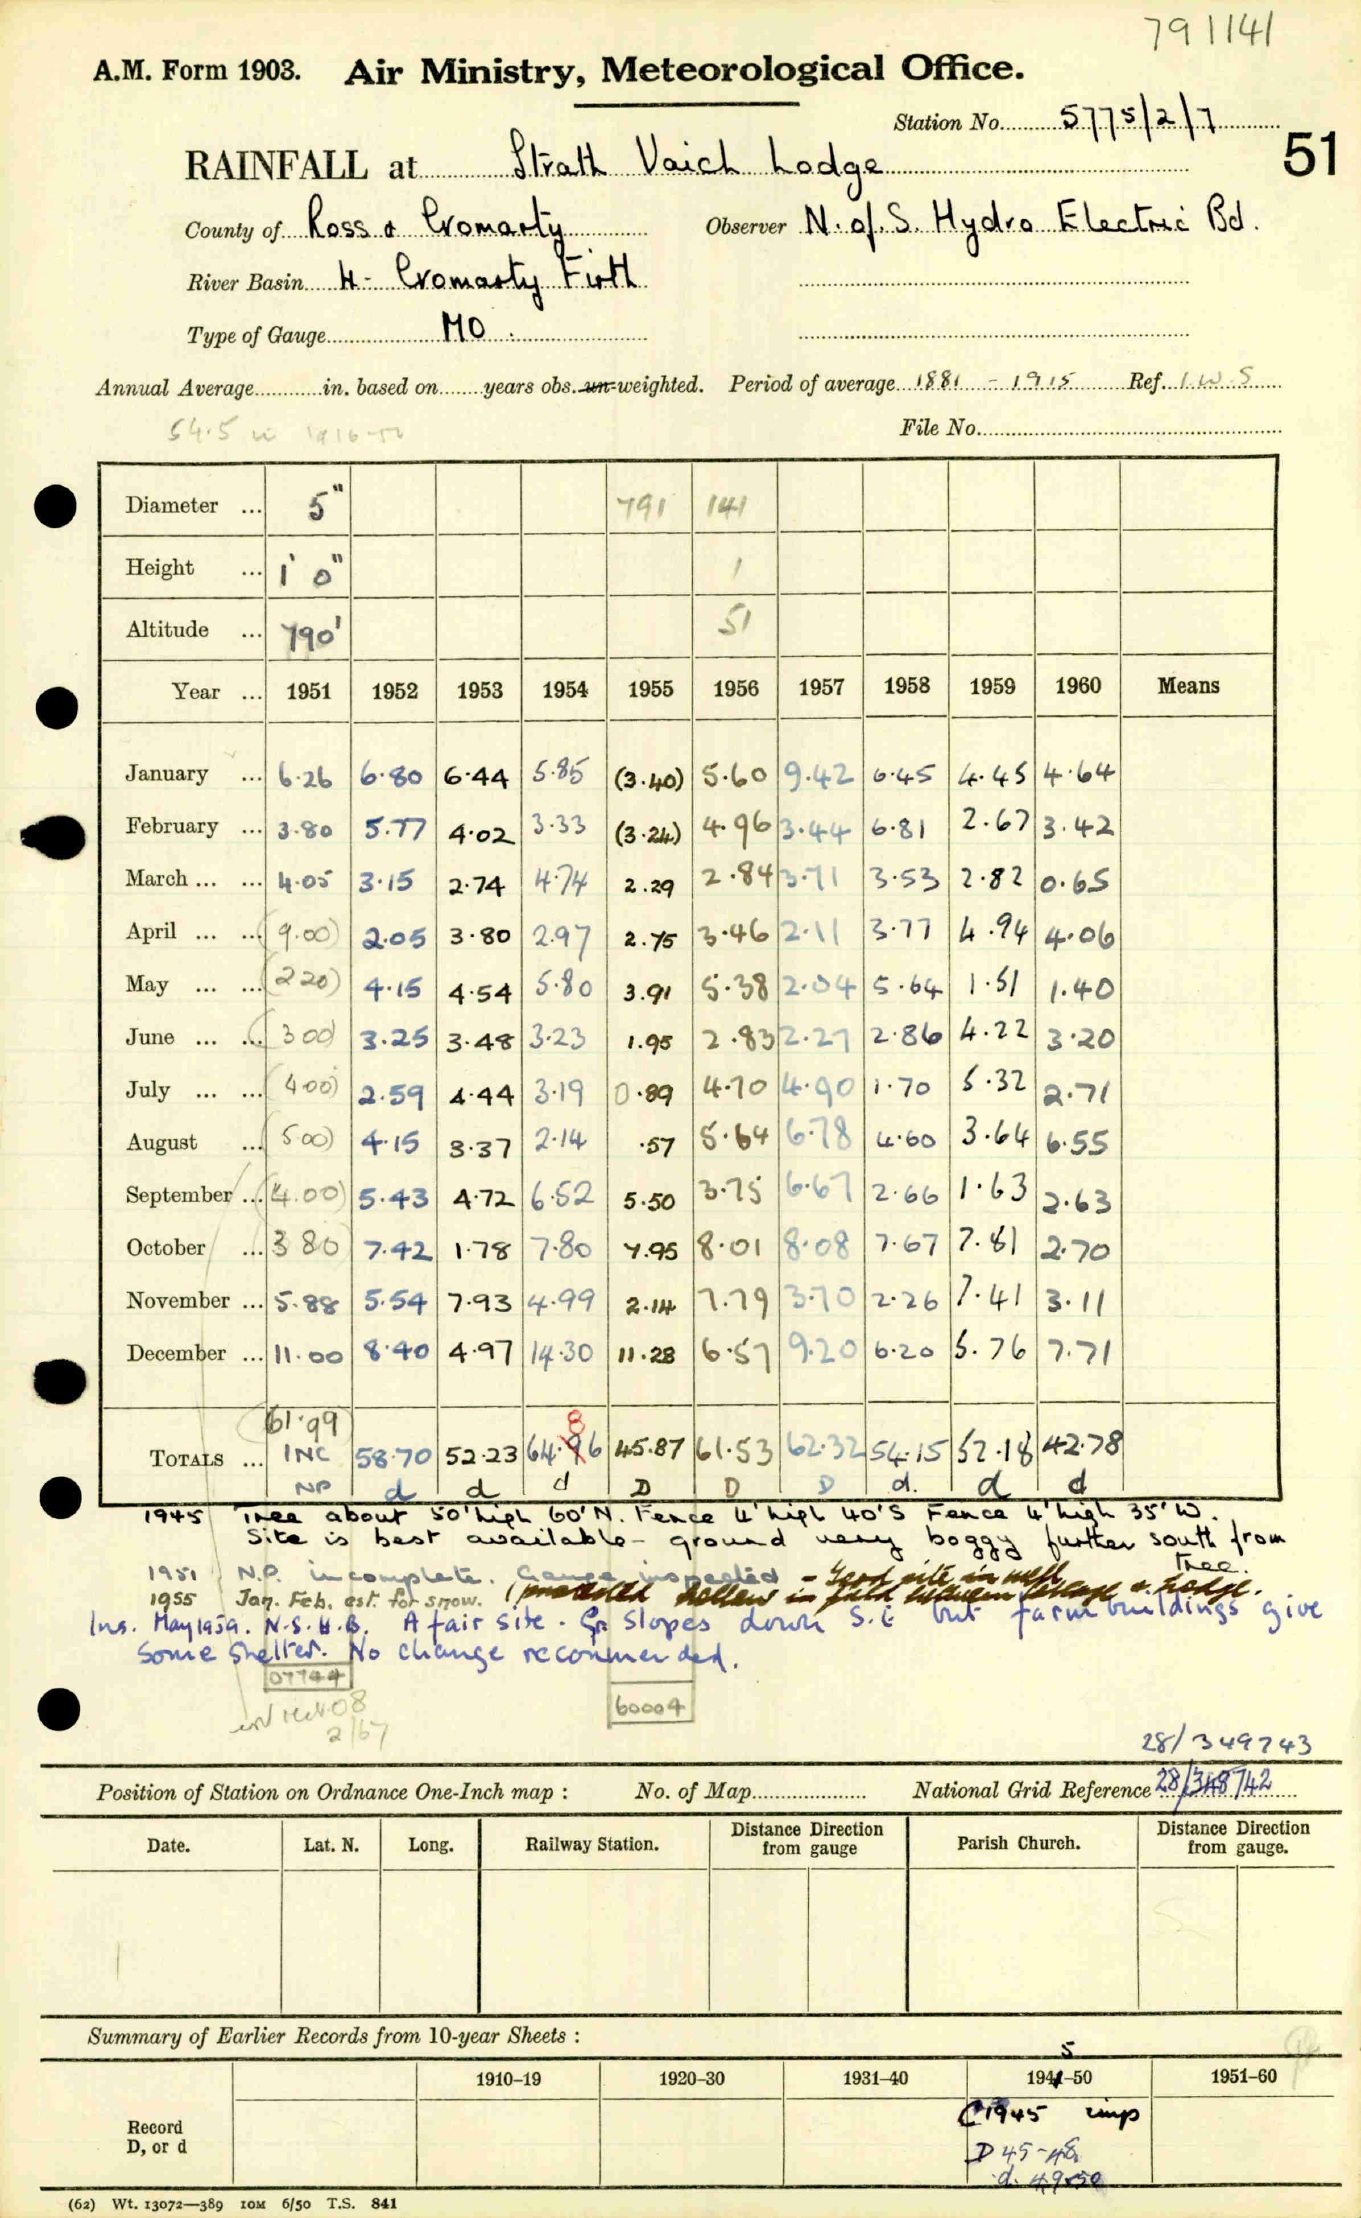 791141
A.M. Form 1903. Air Ministry, Meteorological Office.
Station No. 5775/2/7
51
RAINFALL at Strath Vaich Lodge
County of Ross & Cromarty Observer N. of S. Hydro Electric Bd.
River Basin 4- Cromarty Firth
Type of Gauge MO.
Annual Average in. based on years obs. un-weighted. Period of average 1881 - 1915 Ref. I.W.S
54.5 in 1916-50
File No.
Diameter ... 5" 791 141
Height ... 1' 0" 1
Altitude ... 790' 51
Year ... 1951 1952 1953 1954 1955 1956 1957 1958 1959 1960 Means
January ... 6.26 6.80 6.44 5.85 (3.40) 5.60 9.42 6.45 4.45 4.64
February ... 3.80 5.77 4.02 3.33 (3.24) 4.96 3.44 6.81 2.67 3.42
March ... ... 4.05 3.15 2.74 4.74 2.29 2.84 3.71 3.53 2.82 0.65
April ... ... (9.00) 2.05 3.80 2.97 2.75 3.46 2.11 3.77 4.94 4.06
May ... ... (2 20) 4.15 4.54 5.80 3.91 5.38 2.04 5.64 1.51 1.40
June ... ... (3 00) 3.25 3.48 3.23 1.95 2.83 2.27 2.86 4.22 3.20
July ... ... (4.00) 2.59 4.44 3.19 0.89 4.70 4.90 1.70 5.32 2.71
August ... (5 00) 4.15 3.37 2.14 .57 5.64 6.78 4.60 3.64 6.55
September ... (4.00) 5.43 4.72 6.52 5.50 3.75 6.67 2.66 1.63 2.63
October ... (3 80) 7.42 1.78 7.80 7.95 8.01 8.08 7.67 7.81 2.70
November ... 5.88 5.54 7.93 4.99 2.14 7.79 3.70 2.26 7.41 3.11
December ... 11.00 8.40 4.97 14.30 11.28 6.57 9.20 6.20 5.76 7.71
(61.99) 8
TOTALS ... INC 58.70 52.23 64.96 45.87 61.53 62.32 54.15 52.18 42.78
NP d d d D D D d. d d
1945 Tree about 50' high 60' N. Fence 4' high 40' S Fence 4' high 35' W.
Site is best available - ground very boggy further south from
tree.
1951 N.P. incomplete. Gauge inspected - Good site in well
1955 Jan. Feb. est. for snow. (protected hollow in field between & Lodge.
Ins. May 1959. N.S.H.B. A fair site. Gr slopes down S.E but farm buildings give
some shelter. No change recommended.
07744
08
2/67
60004
28/349743
Position of Station on Ordnance One-Inch map : No. of Map National Grid Reference 28/348742
Date. Lat. N. Long. Railway Station. Distance Direction from gauge Parish Church. Distance Direction from gauge.
Summary of Earlier Records from 10-year Sheets :
5
1910–19 1920–30 1931–40 1941–50 1951–60
Record
D, or d
C 1945 imp
D 45-48
d. 49-50
(62) Wt. 13072—389 10M 6/50 T.S. 841